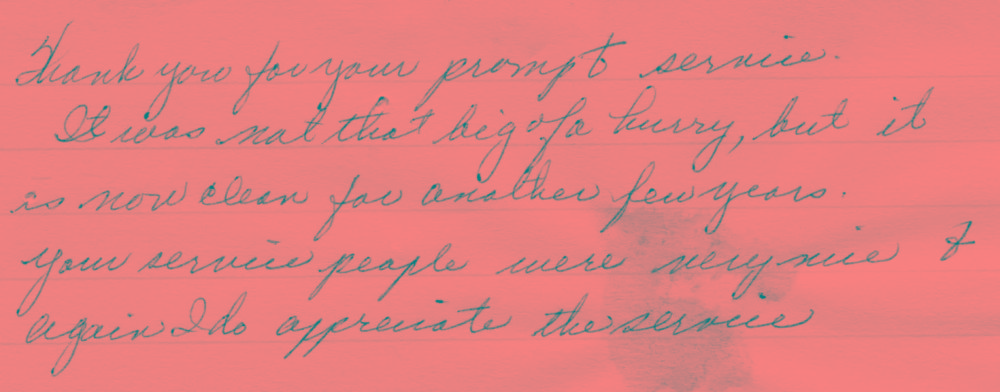 Thank you for your prompt service.
It was not that big of a hurry, but it
is now clean for another few years.
Your service people were very nice &
again I do appreciate the service